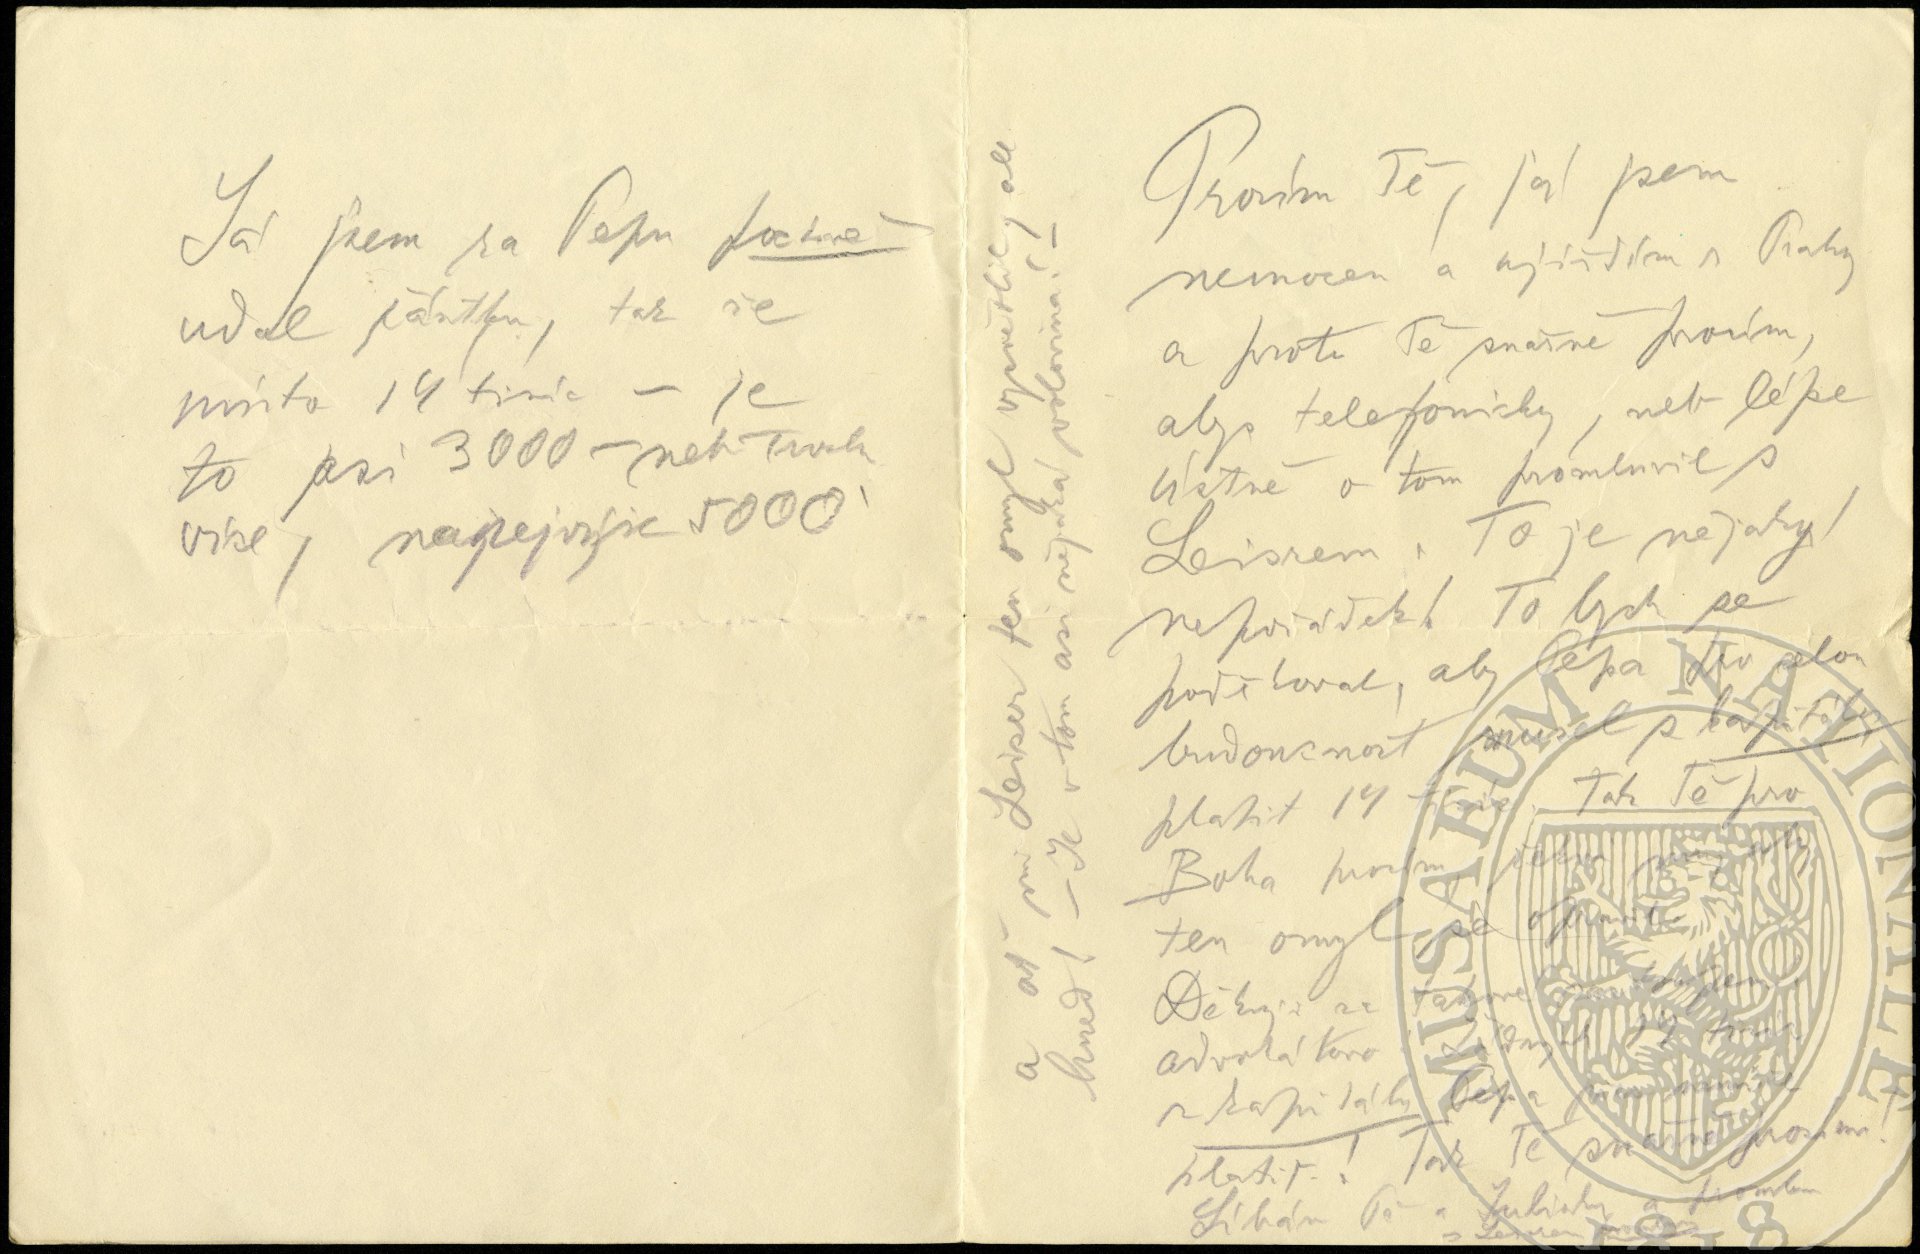 Já jsem za Pepu
udal částku, tak že
místo 14 tisíc – je
to asi 3000 – neb trochu
více, nejvýše 5000
a ať mi Leiser ten omyl vysvětlil, ale
hned! – Je v tom asi nějaká polovina! –
Prosím Tě, já jsem
nemocen a ujíždím z Prahy
a proto Tě snažně prosím,
abys telefonicky, neb lépe
ústně o tom promluvil s
Leisrem. To je nějaký
nepořádek! To bych se
poděkoval, aby Pepa pro celou
budoucnost musel z kapitálu
platit 14 tisíc. Tak Tě pro
Boha prosím, aby
ten omyl se opravil.
Děkuji za takové
advokátovo! žádných 14 tisíc
z kapitálu Pepa
platit! Tak Tě snažně prosím!
Líbám Tě a Lubinku a promluv
s Leisrem
MUSAEUM NATIONALE
1818